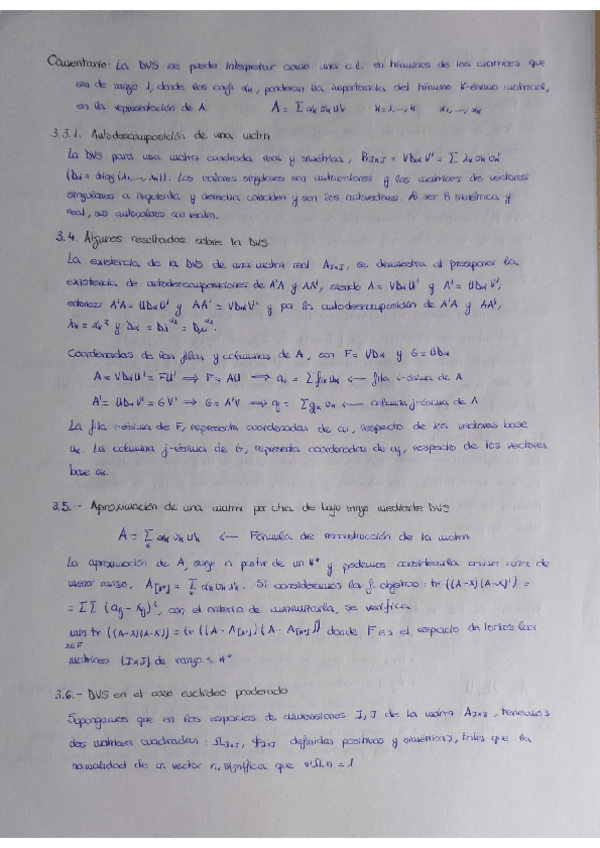 Comentario: La DVS se puede interpretar como una c.l. en términos de las matrices que
son de rango 1, donde los coef. αk, ponderan la importancia del término k-ésimo matricial,
en la representación de A. A = Σ αk vk u'k k=1,...,K α1,...,αk
3.3.1. Autodescomposición de una matriz
La DVS para una matriz cuadrada real y simétrica, B = VDλV' = Σ λk vk v'k
(Dλ = diag(λ1,...,λn)). Los valores singulares son autovalores y las matrices de vectores
singulares a izquierda y derecha coinciden y son los autovectores. Al ser B simétrica y
real, sus autovalores son reales.
3.4. Algunos resultados sobre la DVS
La existencia de la DVS de una matriz real A, se demuestra al presuponer la
existencia de autodescomposiciones de A'A y AA', siendo A = VDαU' y A' = UDαV',
entonces A'A = UDα²U' y AA' = VDα²V' y por la autodescomposición de A'A y AA',
λk = αk² y Dα =
Coordenadas de las filas y columnas de A, son F = VDα y G = UDα
A = VDαU' = FU' ⟹ F = AU ⟹ ai = Σ fik uk ⟵ fila i-ésima de A
A' = UDαV' = GV' ⟹ G = A'V ⟹ aj = Σ gjk vk ⟵ columna j-ésima de A
La fila i-ésima de F, representa coordenadas de ai, respecto de los vectores base
uk. La columna j-ésima de G, representa coordenadas de aj, respecto de los vectores
base vk.
3.5.- Aproximación de una matriz por otra de bajo rango mediante DVS
A = Σ αk vk u'k ⟵ Fórmula de reconstrucción de la matriz
La aproximación de A, surge a partir de un K* y podemos considerarla como una de
menor rango. A[K*] = Σ αk vk u'k. Si consideramos la f. objetivo: tr ((A-X)(A-X)') =
= ΣΣ (aij - xij)², con el criterio de minimizarla, se verifica:
min tr ((A-X)(A-X)') = tr ((A - A[K*])(A - A[K*])') donde F es el espacio de todas las
X∈F
matrices (IxJ) de rango ≤ K*
3.6.- DVS en el caso euclídeo ponderado
Supongamos que en los espacios de dimensiones I, J de la matriz A, tenemos
dos matrices cuadradas: Ω, definidas positivas y simétricas, tales que la
normalidad de un vector n, significa que n'Ωn = 1